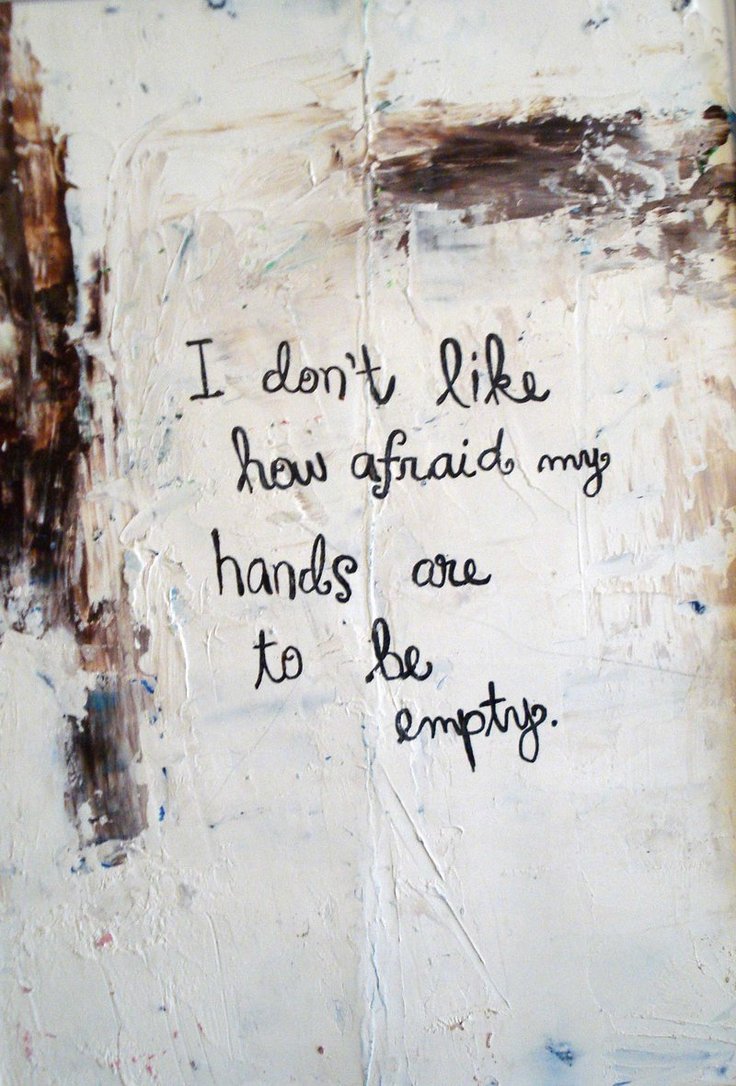 I don't like
how afraid my
hands are
to be
empty.